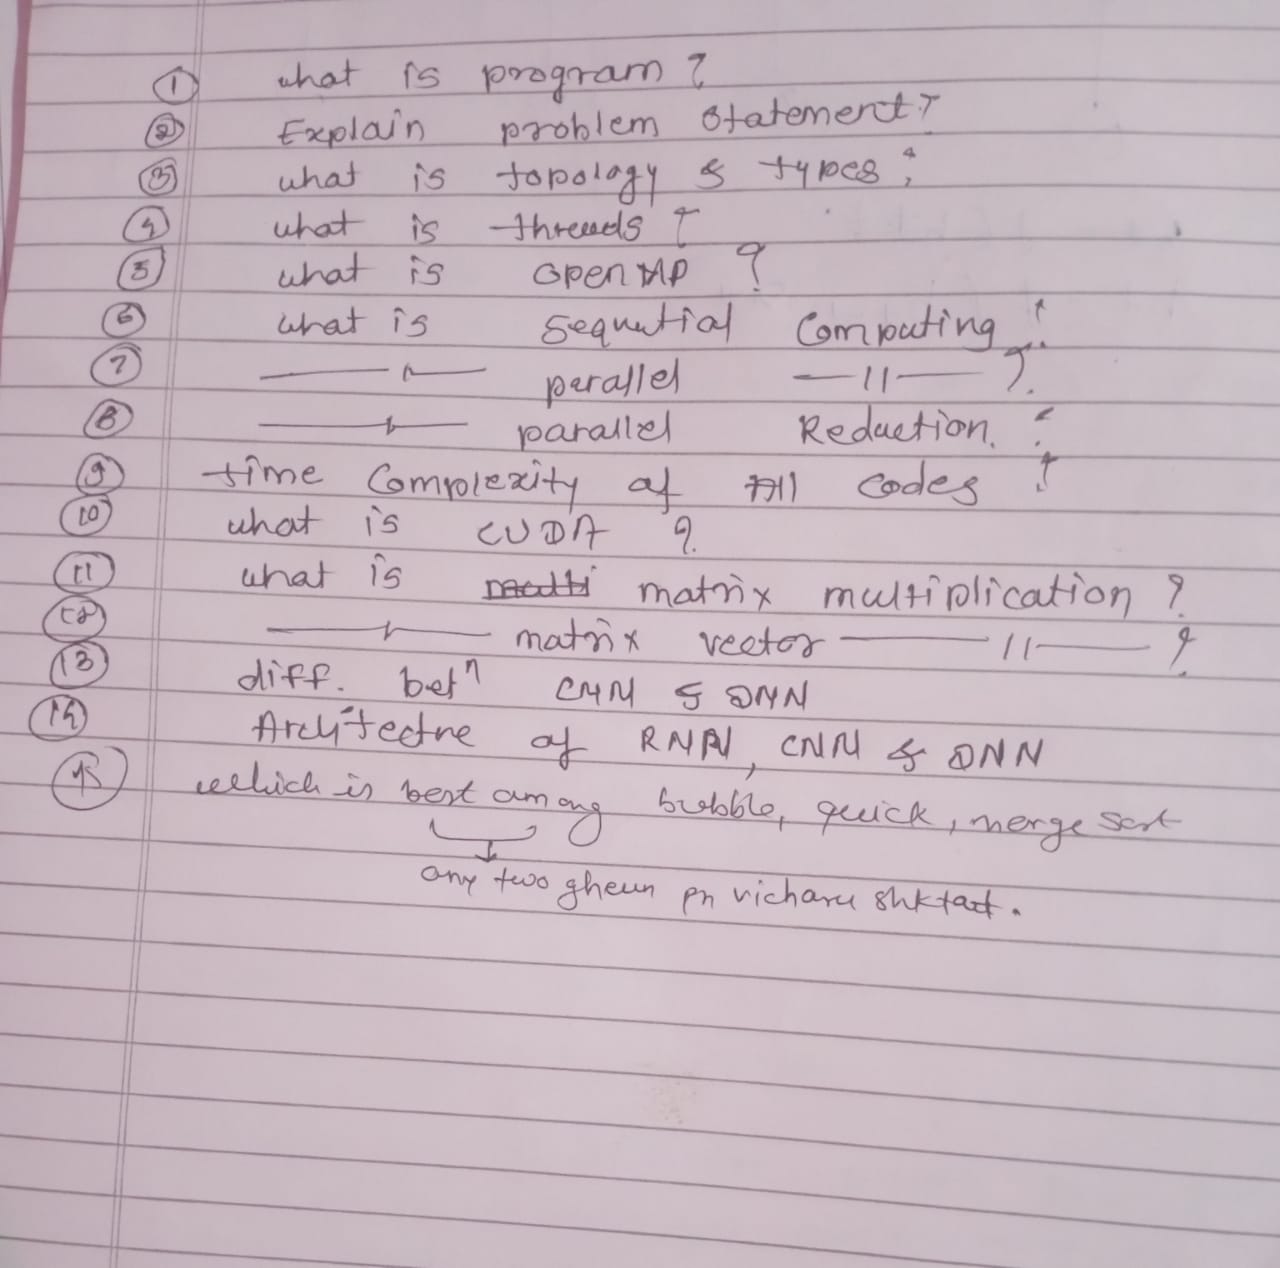 ① what is program ?
② Explain problem statement ?
③ what is topology & types ?
④ what is threads ?
⑤ what is openMP ?
⑥ what is sequntial Computing ?
⑦ —— 〃 —— parallel —11— ?
⑧ —— 〃 —— parallel Reduction. ?
⑨ time Complexity of All codes ?
⑩ what is CUDA ?
⑪ what is matrix multiplication ?
⑫ —— 〃 —— matrix vector —— 11 —— ?
⑬ diff. betⁿ CNN & DNN
⑭ Architectre of RNN, CNN & DNN
⑮ which is best among bubble, quick, merge sort
any two gheun pn vicharu shktat.